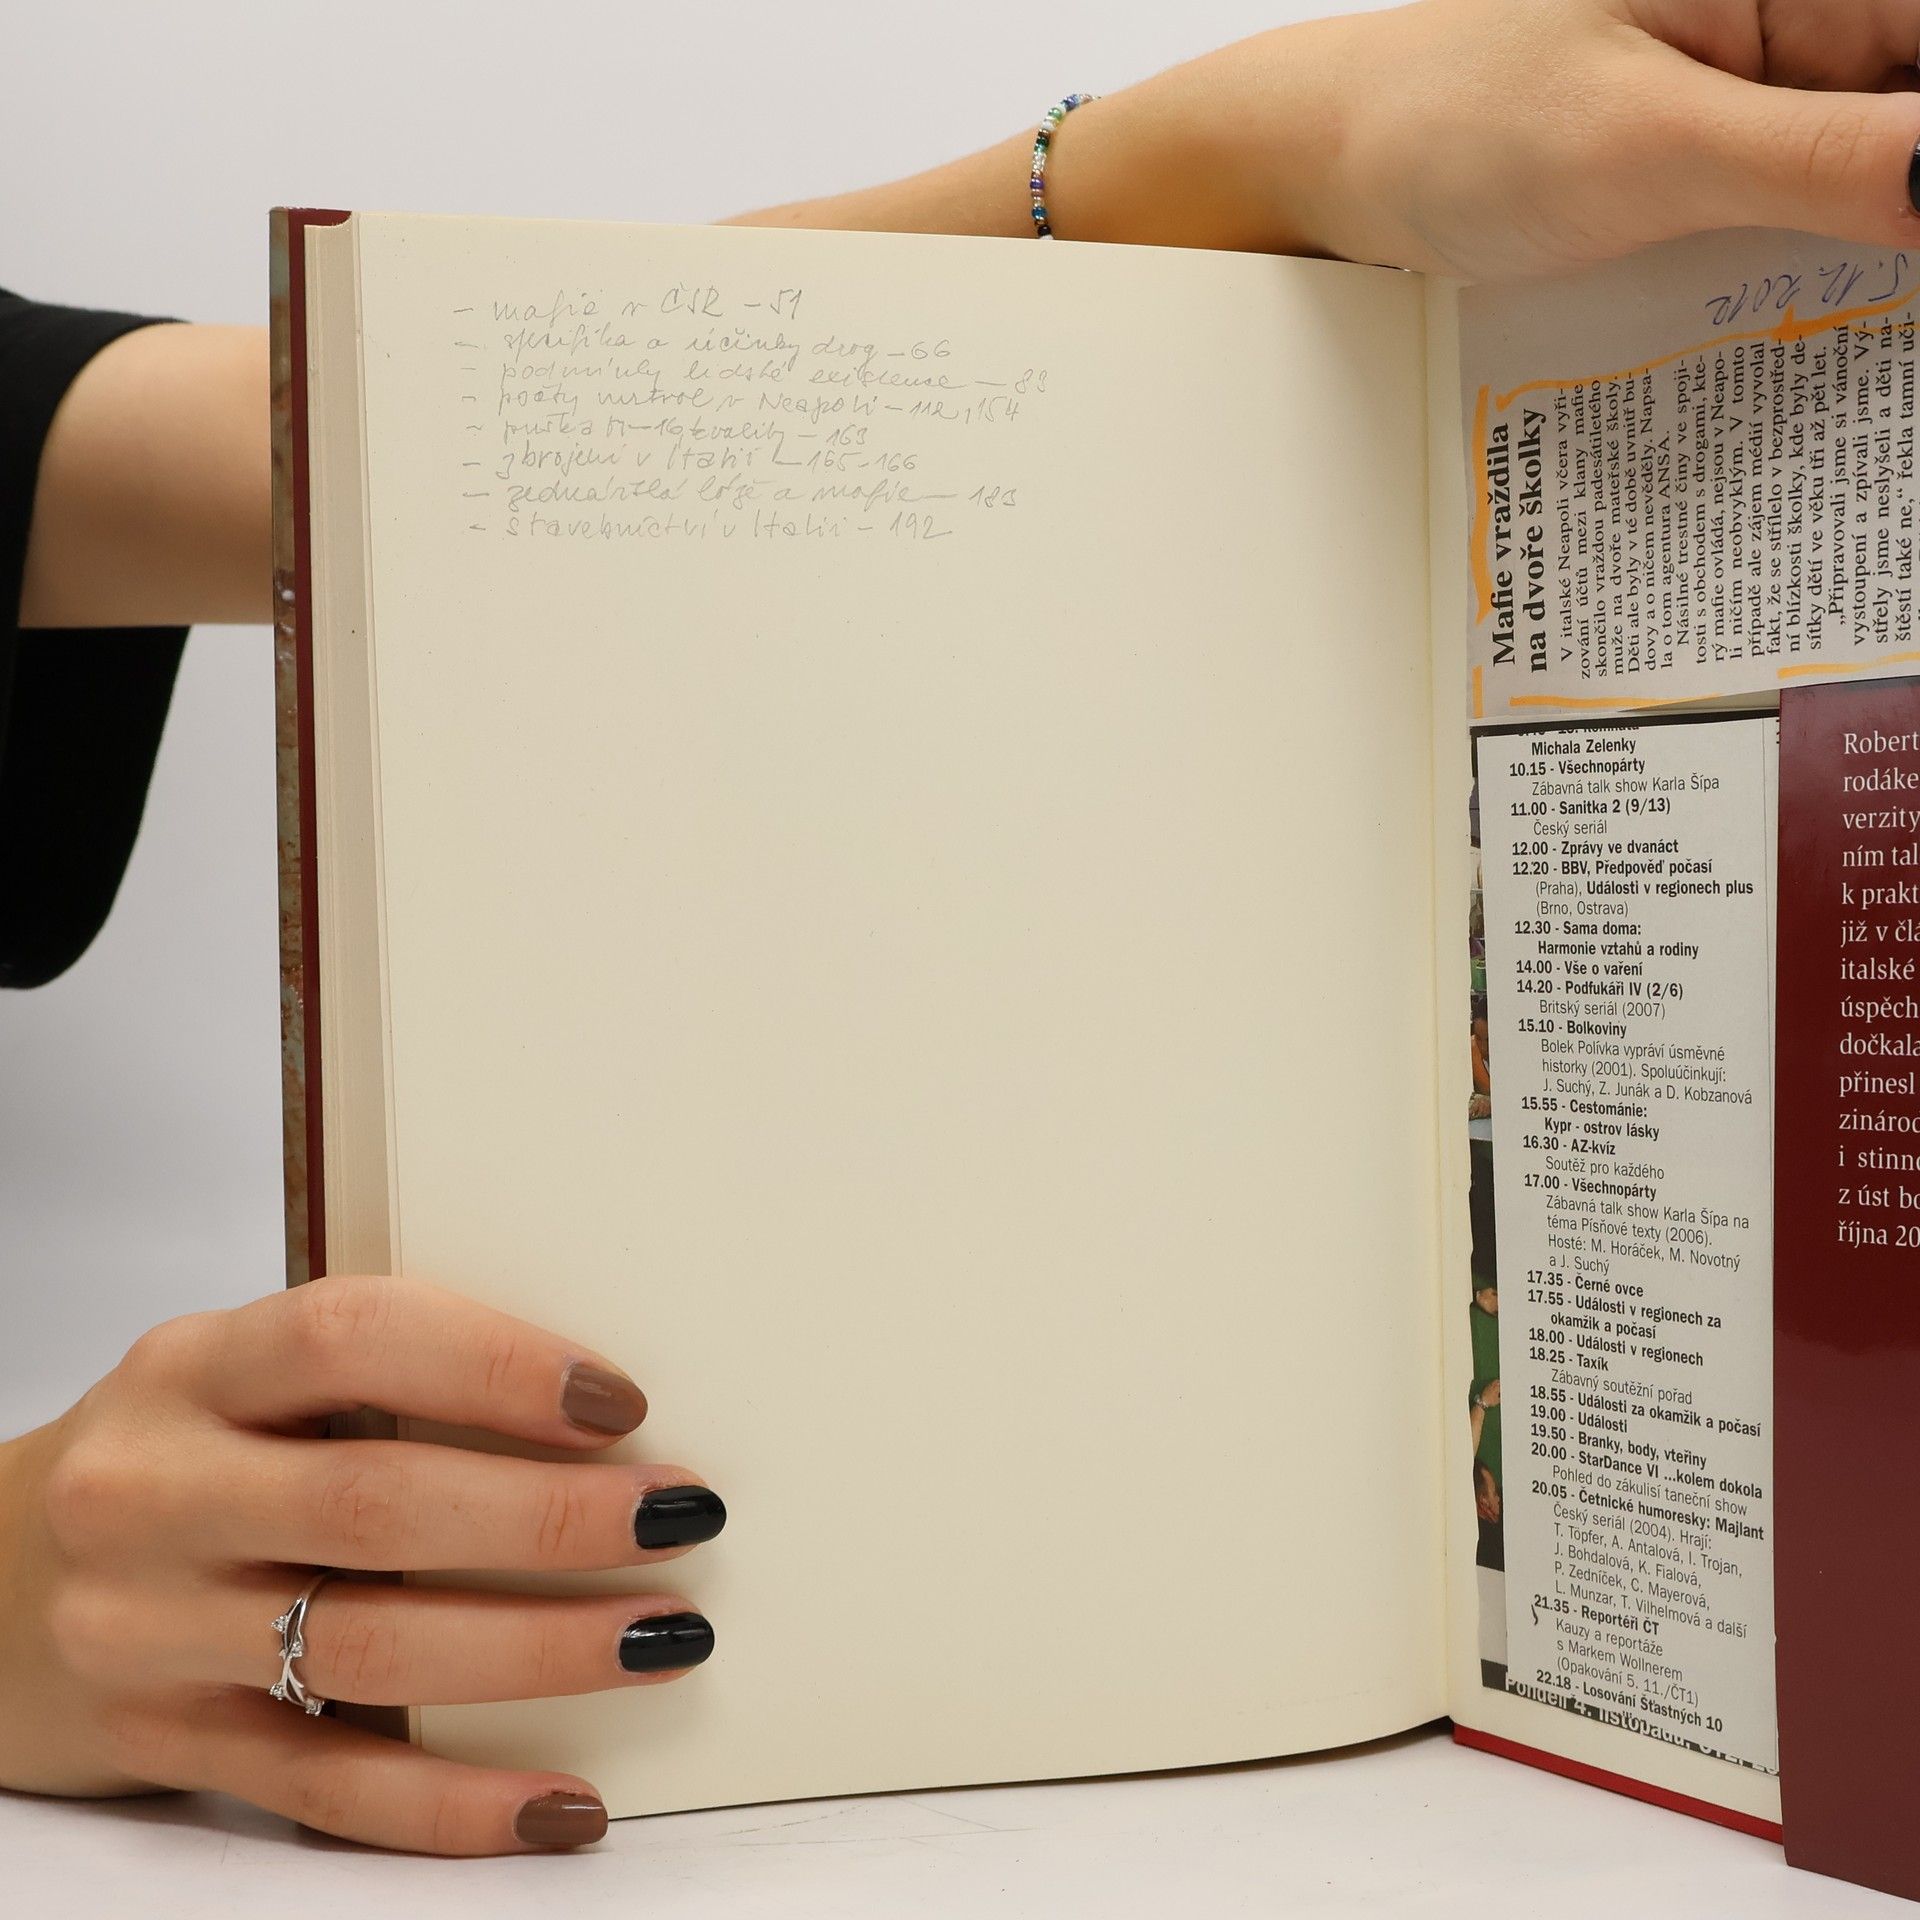 - mafie v ČSR - 51
- specifika a účinky drog - 66
- podmínky lidské existence - 83
- počty mrtvol v Neapoli - 112, 154
- puška M-16, kvality - 163
- zbrojení v Itálii - 165-166
- zednářská lóže a mafie - 183
- stavebnictví v Itálii - 192
5. 12. 2012
Mafie vraždila
na dvoře školky
V italské Neapoli včera vyři-
zování účtů mezi klany mafie
skončilo vraždou padesátiletého
muže na dvoře mateřské školy.
Děti ale byly v té době uvnitř bu-
dovy a o ničem nevěděly. Napsa-
la o tom agentura ANSA.
Násilné trestné činy ve spoji-
tosti s obchodem s drogami, kte-
rý mafie ovládá, nejsou v Neapo-
li ničím neobvyklým. V tomto
případě ale zájem médií vyvolal
fakt, že se střílelo v bezprostřed-
ní blízkosti školky, kde byly de-
sítky dětí ve věku tři až pět let.
„Připravovali jsme si vánoční
vystoupení a zpívali jsme. Vý-
střely jsme neslyšeli a děti na-
štěstí také ne,“ řekla tamní uči-
Michala Zelenky
10.15 - Všechnopárty
Zábavná talk show Karla Šípa
11.00 - Sanitka 2 (9/13)
Český seriál
12.00 - Zprávy ve dvanáct
12.20 - BBV, Předpověď počasí
(Praha), Události v regionech plus
(Brno, Ostrava)
12.30 - Sama doma:
Harmonie vztahů a rodiny
14.00 - Vše o vaření
14.20 - Podfukáři IV (2/6)
Britský seriál (2007)
15.10 - Bolkoviny
Bolek Polívka vypráví úsměvné
historky (2001). Spoluúčinkují:
J. Suchý, Z. Junák a D. Kobzanová
15.55 - Cestománie:
Kypr - ostrov lásky
16.30 - AZ-kvíz
Soutěž pro každého
17.00 - Všechnopárty
Zábavná talk show Karla Šípa na
téma Písňové texty (2006).
Hosté: M. Horáček, M. Novotný
a J. Suchý
17.35 - Černé ovce
17.55 - Události v regionech za
okamžik a počasí
18.00 - Události v regionech
18.25 - Taxík
Zábavný soutěžní pořad
18.55 - Události za okamžik a počasí
19.00 - Události
19.50 - Branky, body, vteřiny
20.00 - StarDance VI ...kolem dokola
Pohled do zákulisí taneční show
20.05 - Četnické humoresky: Majlant
Český seriál (2004). Hrají:
T. Töpfer, A. Antalová, I. Trojan,
J. Bohdalová, K. Fialová,
P. Zedníček, C. Mayerová,
L. Munzar, T. Vilhelmová a další
21.35 - Reportéři ČT
Kauzy a reportáže
s Markem Wollnerem
(Opakování 5. 11./ČT1)
22.18 - Losování Šťastných 10
Pondělí 4. listopadu,
Robert
rodáke
verzity
ním tal
k prakt
již v člá
italské
úspěch
dočkala
přinesl
zinárod
i stinno
z úst bo
října 20